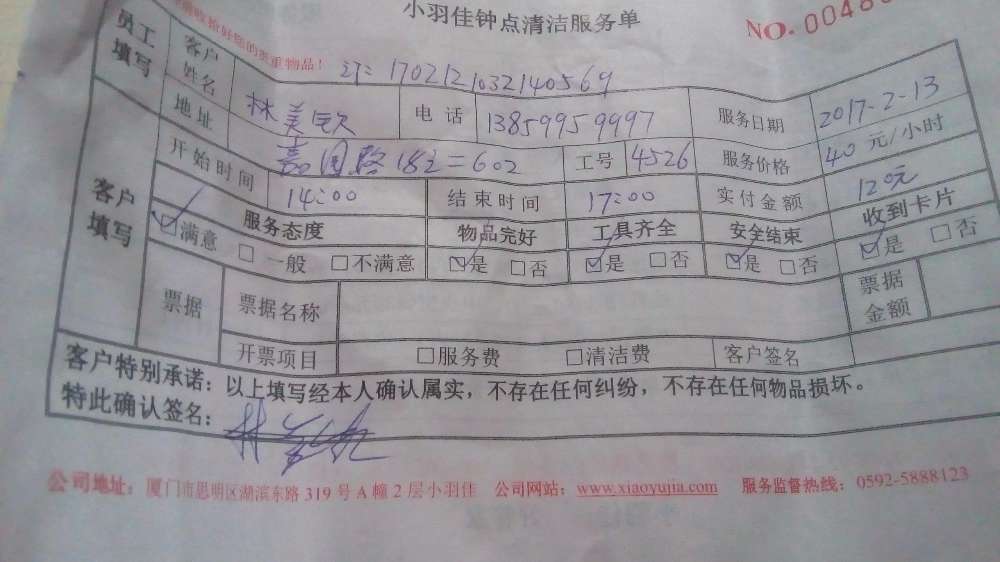 小羽佳钟点清洁服务单
NO. 0048
收拾好您的贵重物品！
订: 1702121032140569
员工填写 客户姓名 林美钦 电话 13859959997 服务日期 2017-2-13
地址 嘉园路182=602 工号 4526 服务价格 40元/小时
客户填写 开始时间 14:00 结束时间 17:00 实付金额 120元
服务态度 物品完好 工具齐全 安全结束 收到卡片
☑满意 □一般 □不满意 ☑是 □否 ☑是 □否 ☑是 □否 ☑是 □否
票据 票据名称 票据金额
开票项目 □服务费 □清洁费 客户签名
客户特别承诺：以上填写经本人确认属实，不存在任何纠纷，不存在任何物品损坏。
特此确认签名：
公司地址：厦门市思明区湖滨东路319号A幢2层小羽佳 公司网站：www.xiaoyujia.com 服务监督热线：0592-5888123